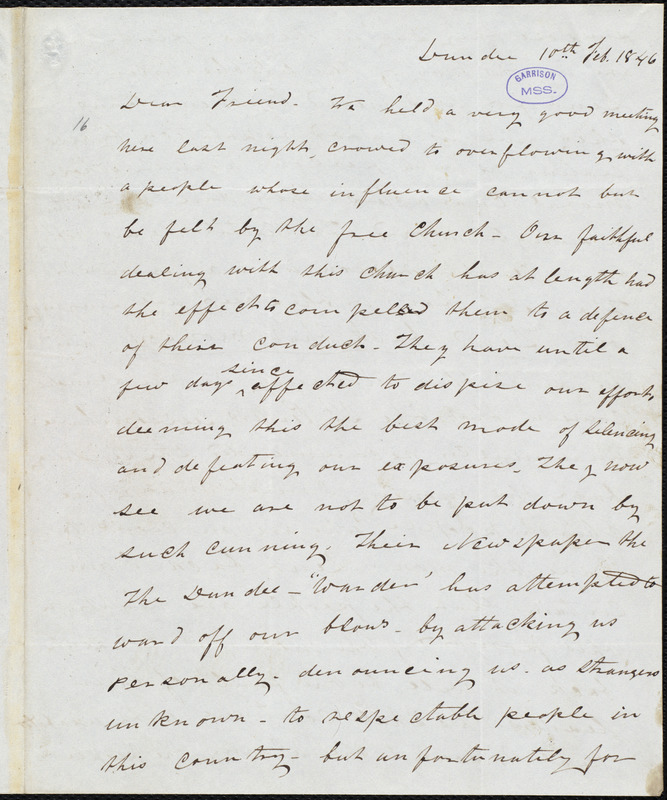 Dundee 10th Feb. 1846
GARRISON
MSS.
16
Dear Friend. We held a very good meeting
here last night, crowed to overflowing with
a people whose influence cannot but
be felt by the free Church - Our faithful
dealing with this church has at length had
the effect to compelled them to a defence
of their conduct - They have until a
few days since affected to dispise our efforts
deeming this the best mode of Silencing
and defeating our exposures. They now
see we are not to be put down by
such cunning. Their Newspaper the
The Dundee - "Warder' has attempted to
ward off our blows - by attacking us
personally - denouncing us - as strangers
unknown - to respectable people in
this country - but unfortunately for